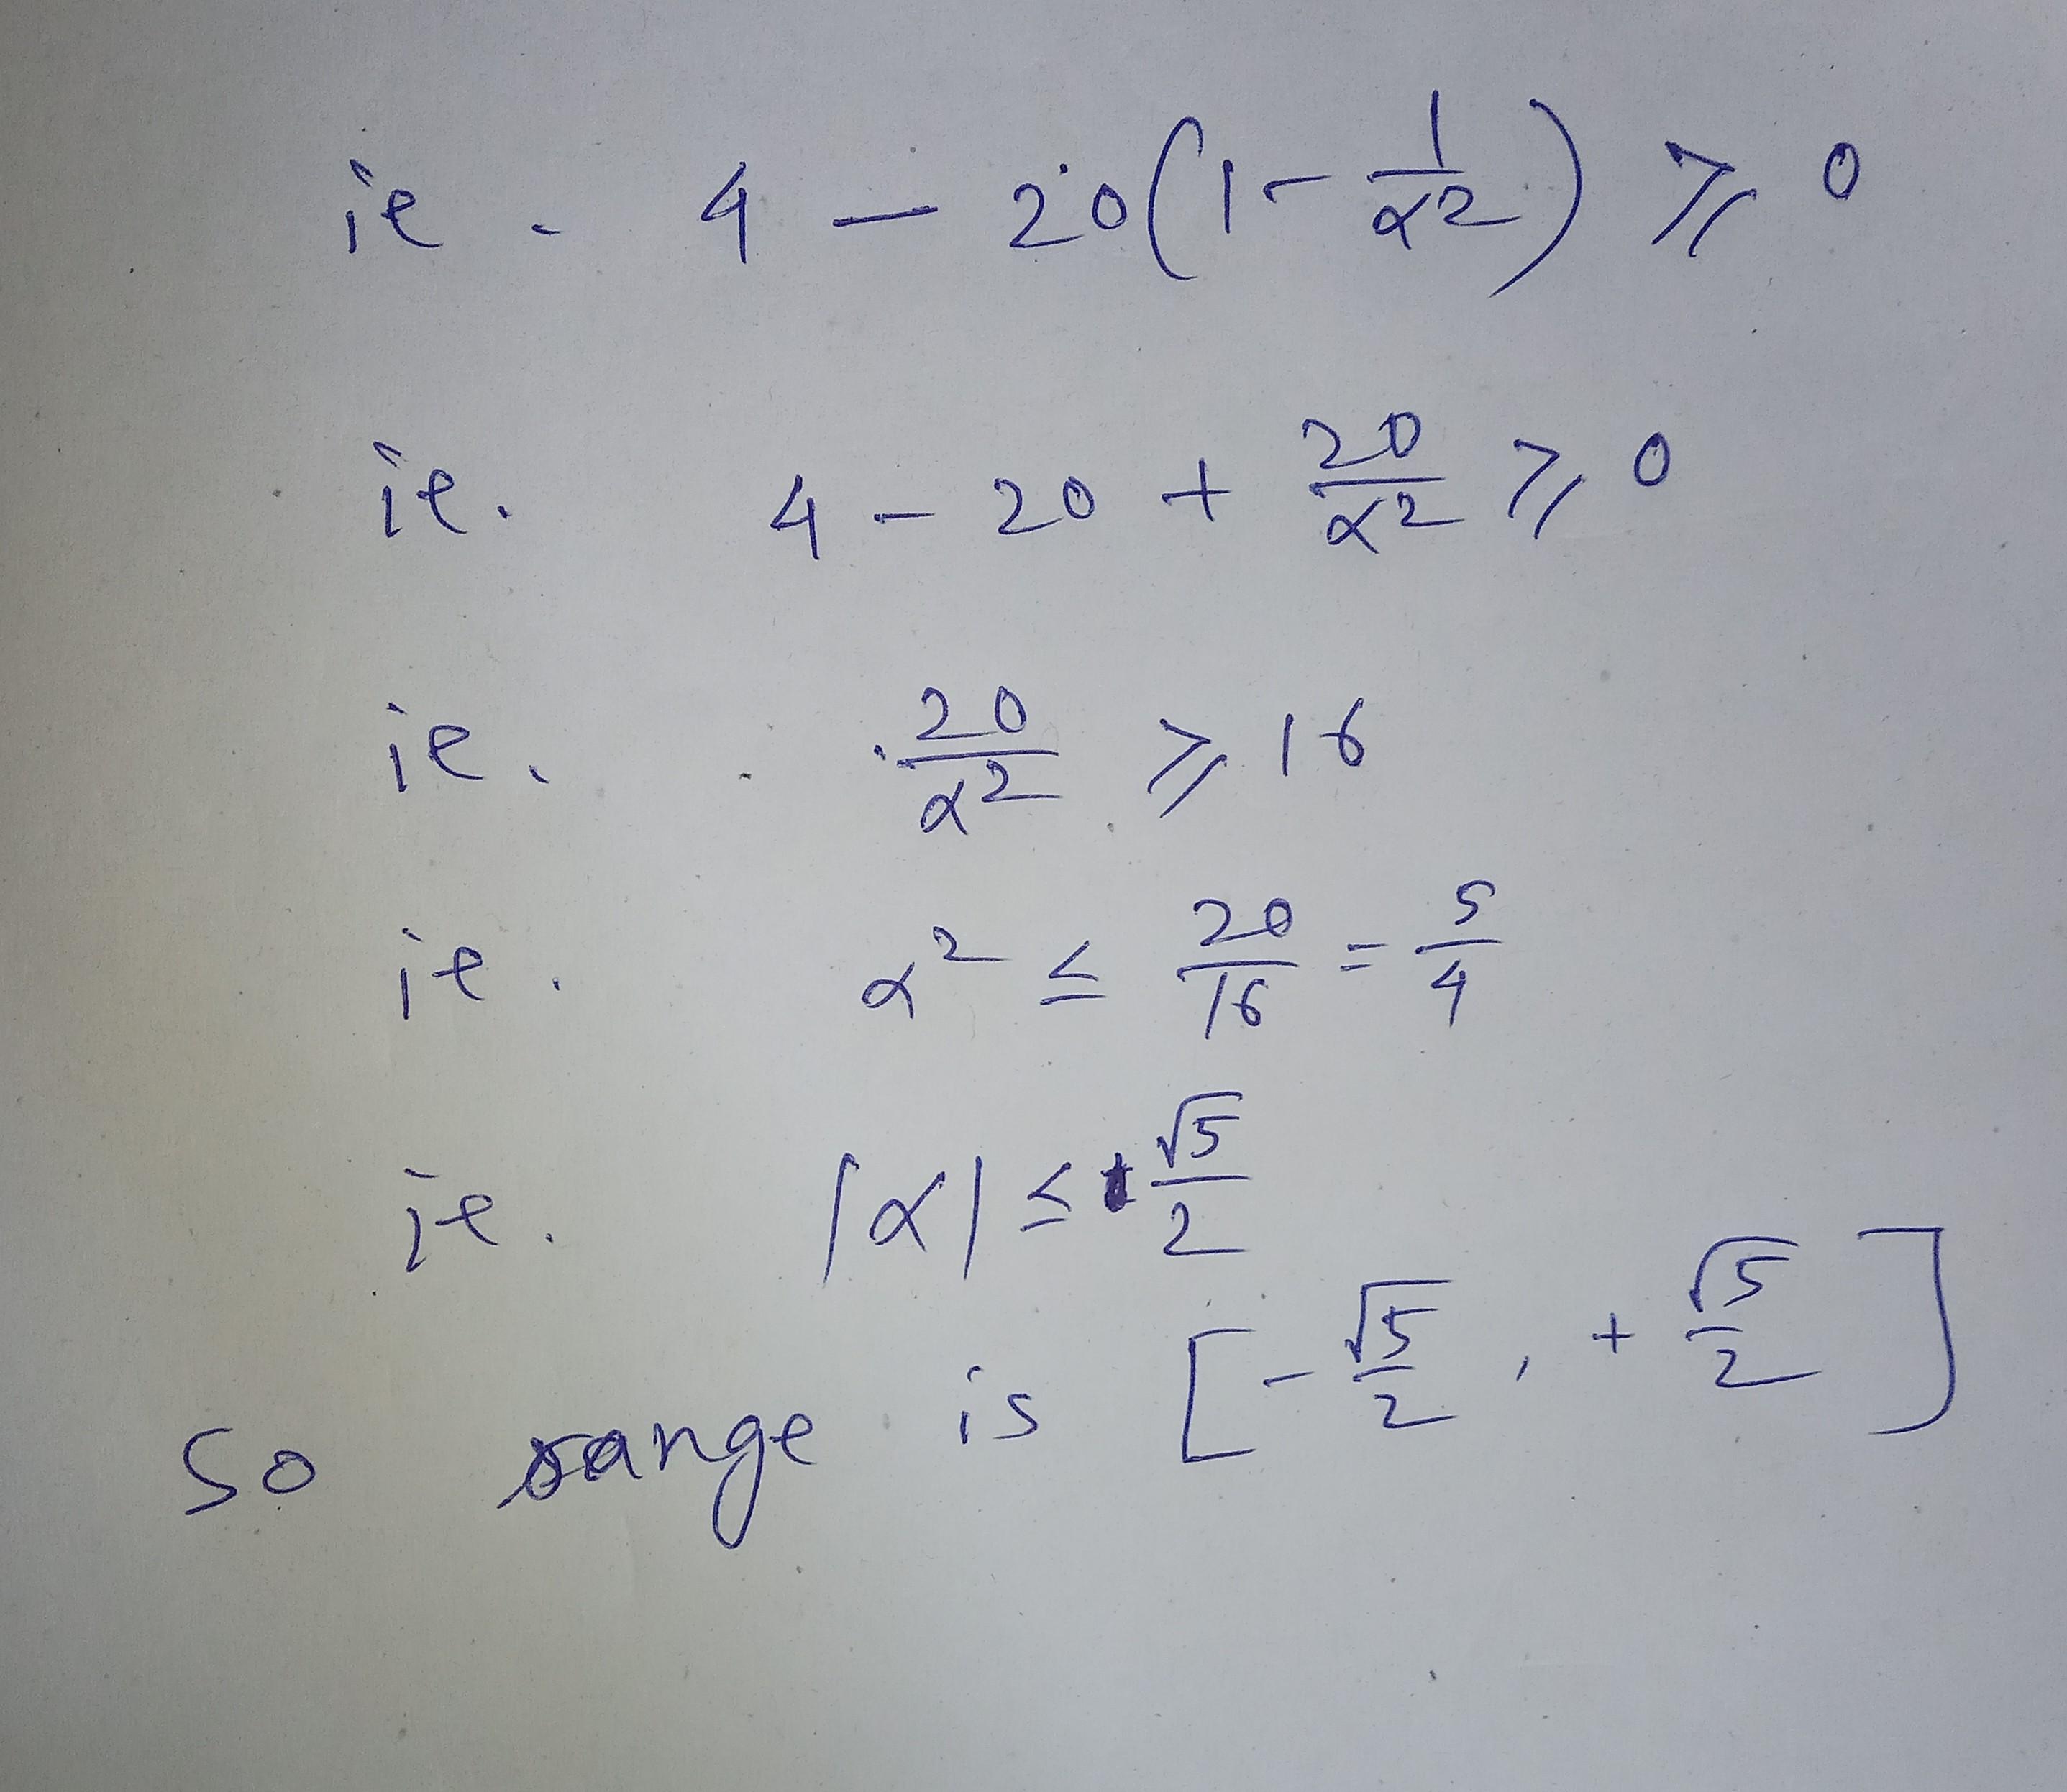 ie. 4 - 20(1 - 1/α²) ≥ 0
ie. 4 - 20 + 20/α² ≥ 0
ie. 20/α² ≥ 16
ie. α² ≤ 20/16 = 5/4
ie. |α| ≤ √5/2
So range is [-√5/2, +√5/2]